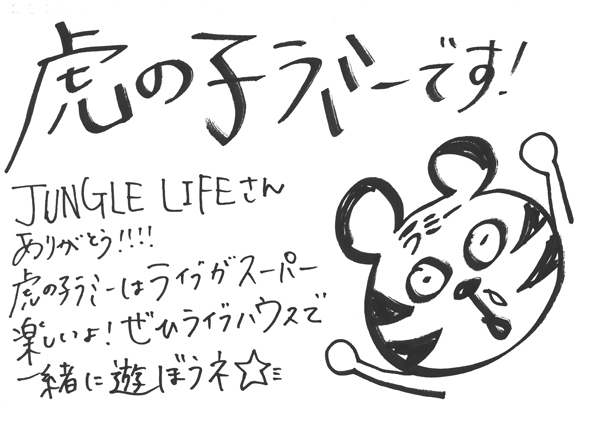 虎の子ラバーです!
JUNGLE LIFEさん
ありがとう!!!!
虎の子ラバーはライブがスーパー
楽しいよ!ぜひライブハウスで
一緒に遊ぼうネ☆